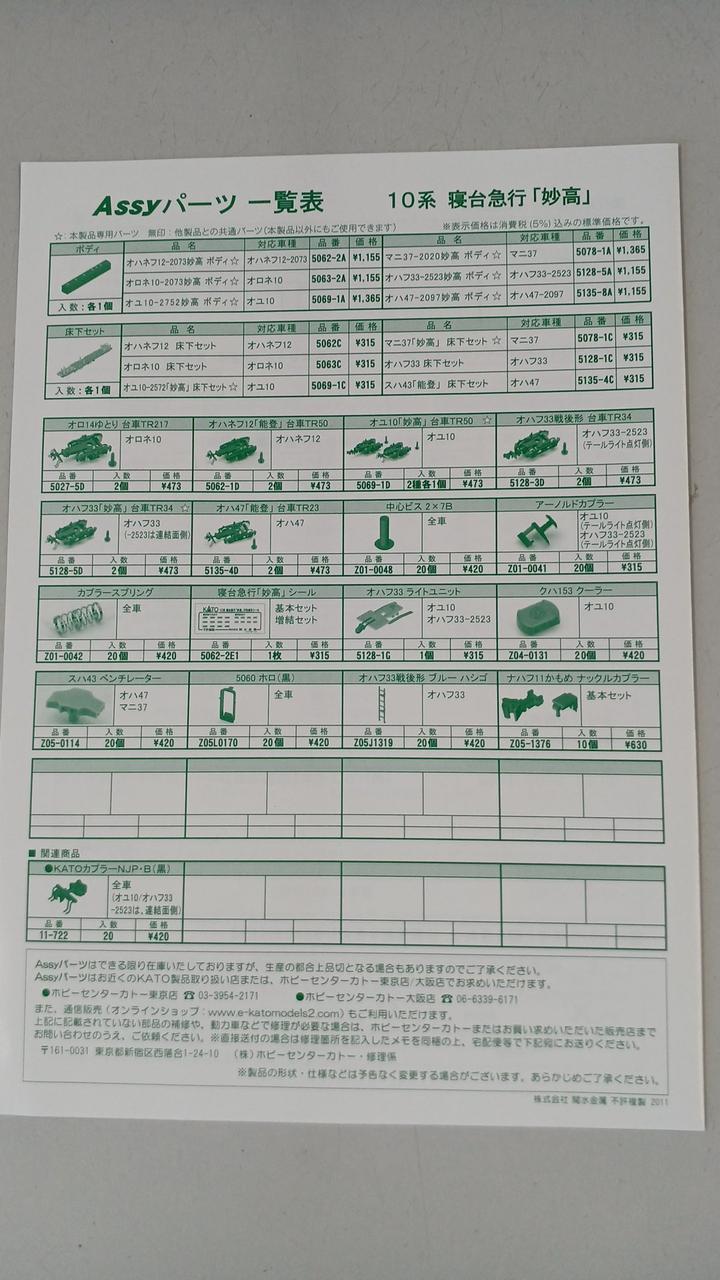 Assyパーツ 一覧表 10系 寝台急行「妙高」
☆:本製品専用パーツ 無印:他製品との共通パーツ(本製品以外にもご使用できます) ※表示価格は消費税(5%)込みの標準価格です。
ボディ 品名 対応車種 品番 価格 品名 対応車種 品番 価格
オハネフ12-2073妙高 ボディ☆ オハネフ12-2073 5062-2A ¥1,155 マニ37-2020妙高 ボディ☆ マニ37 5078-1A ¥1,365
オロネ10-2073妙高 ボディ☆ オロネ10 5063-2A ¥1,155 オハフ33-2523妙高 ボディ☆ オハフ33-2523 5128-5A ¥1,155
入数:各1個 オユ10-2752妙高 ボディ☆ オユ10 5069-1A ¥1,365 オハ47-2097妙高 ボディ☆ オハ47-2097 5135-8A ¥1,155
床下セット 品名 対応車種 品番 価格 品名 対応車種 品番 価格
オハネフ12 床下セット オハネフ12 5062C ¥315 マニ37「妙高」床下セット☆ マニ37 5078-1C ¥315
オロネ10 床下セット オロネ10 5063C ¥315 オハフ33 床下セット オハフ33 5128-1C ¥315
入数:各1個 オユ10-2572「妙高」床下セット☆ オユ10 5069-1C ¥315 スハ43「能登」床下セット オハ47 5135-4C ¥315
オロ14ゆとり 台車TR217 オハネフ12「能登」台車TR50 オユ10「妙高」台車TR50 ☆ オハフ33戦後形 台車TR34
オロネ10 オハネフ12 オユ10 オハフ33-2523
(テールライト点灯側)
品番 入数 価格 品番 入数 価格 品番 入数 価格 品番 入数 価格
5027-5D 2個 ¥473 5062-1D 2個 ¥473 5069-1D 2種各1個 ¥473 5128-3D 2個 ¥473
オハフ33「妙高」台車TR34 ☆ オハ47「能登」台車TR23 中心ビス 2×7B アーノルドカプラー
オハフ33
(-2523は連結面側)
オハ47 全車 オユ10
(テールライト点灯側)
オハフ33-2523
(テールライト点灯側)
品番 入数 価格 品番 入数 価格 品番 入数 価格 品番 入数 価格
5128-5D 2個 ¥473 5135-4D 2個 ¥473 Z01-0048 20個 ¥420 Z01-0041 20個 ¥315
カプラースプリング 寝台急行「妙高」シール オハフ33 ライトユニット クハ153 クーラー
全車 KATO 基本セット
増結セット
オユ10
オハフ33-2523
オユ10
品番 入数 価格 品番 入数 価格 品番 入数 価格 品番 入数 価格
Z01-0042 20個 ¥420 5062-2E1 1枚 ¥315 5128-1G 1個 ¥315 Z04-0131 20個 ¥420
スハ43 ベンチレーター 5060 ホロ(黒) オハフ33戦後形 ブルー ハシゴ ナハフ11かもめ ナックルカプラー
オハ47
マニ37
全車 オハフ33 基本セット
品番 入数 価格 品番 入数 価格 品番 入数 価格 品番 入数 価格
Z05-0114 20個 ¥420 Z05L0170 20個 ¥420 Z05J1319 20個 ¥420 Z05-1376 10個 ¥630
■ 関連商品
●KATOカプラーNJP・B(黒)
全車
(オユ10/オハフ33
-2523は、連結面側)
品番 入数 価格
11-722 20 ¥420
Assyパーツはできる限り在庫いたしておりますが、生産の都合上品切となる場合もありますのでご了承ください。
Assyパーツはお近くのKATO製品取り扱い店または、ホビーセンターカトー東京店/大阪店でお求めいただけます。
●ホビーセンターカトー東京店 ☎ 03-3954-2171 ●ホビーセンターカトー大阪店 ☎ 06-6339-6171
また、通信販売(オンラインショップ:www.e-katomodels2.com)もご利用いただけます。
上記に記載されていない部品の補修や、動力車などで修理が必要な場合は、ホビーセンターカトーまたはお買い求めいただいた販売店まで
お問い合わせのうえ、ご依頼ください。※直接送付の場合は修理箇所を記入したメモを同梱の上、宅配便等で下記宛にお送りください。
〒161-0031 東京都新宿区西落合1-24-10 (株)ホビーセンターカトー・修理係
※製品の形状・仕様などは予告なく変更する場合がございます。あらかじめご了承ください。
株式会社 関水金属 不許複製 2011